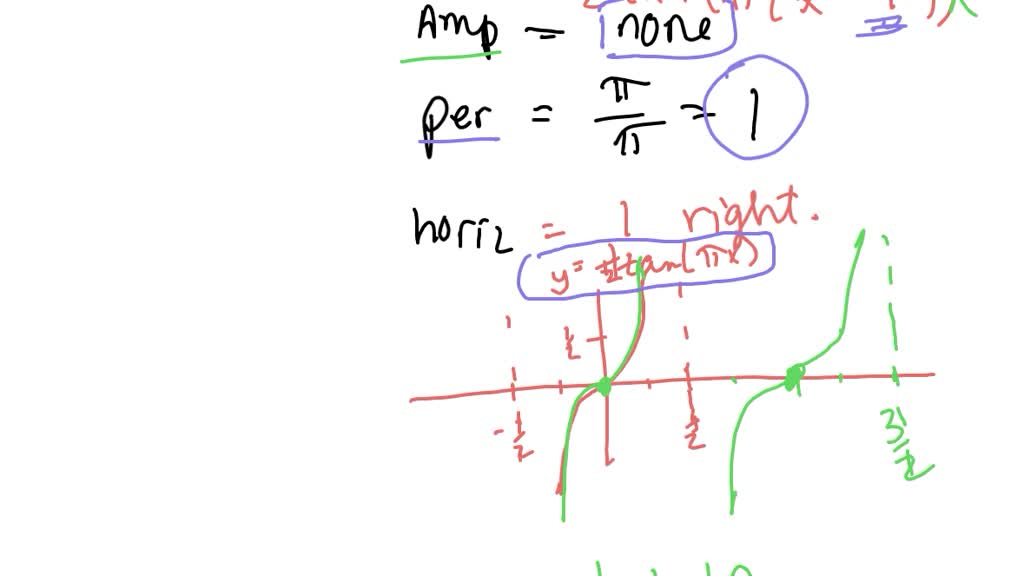 Amp = none
per = π/π = 1
horiz = 1 right.
y = ½ tan(πx)
½
-½ ½ 3/2